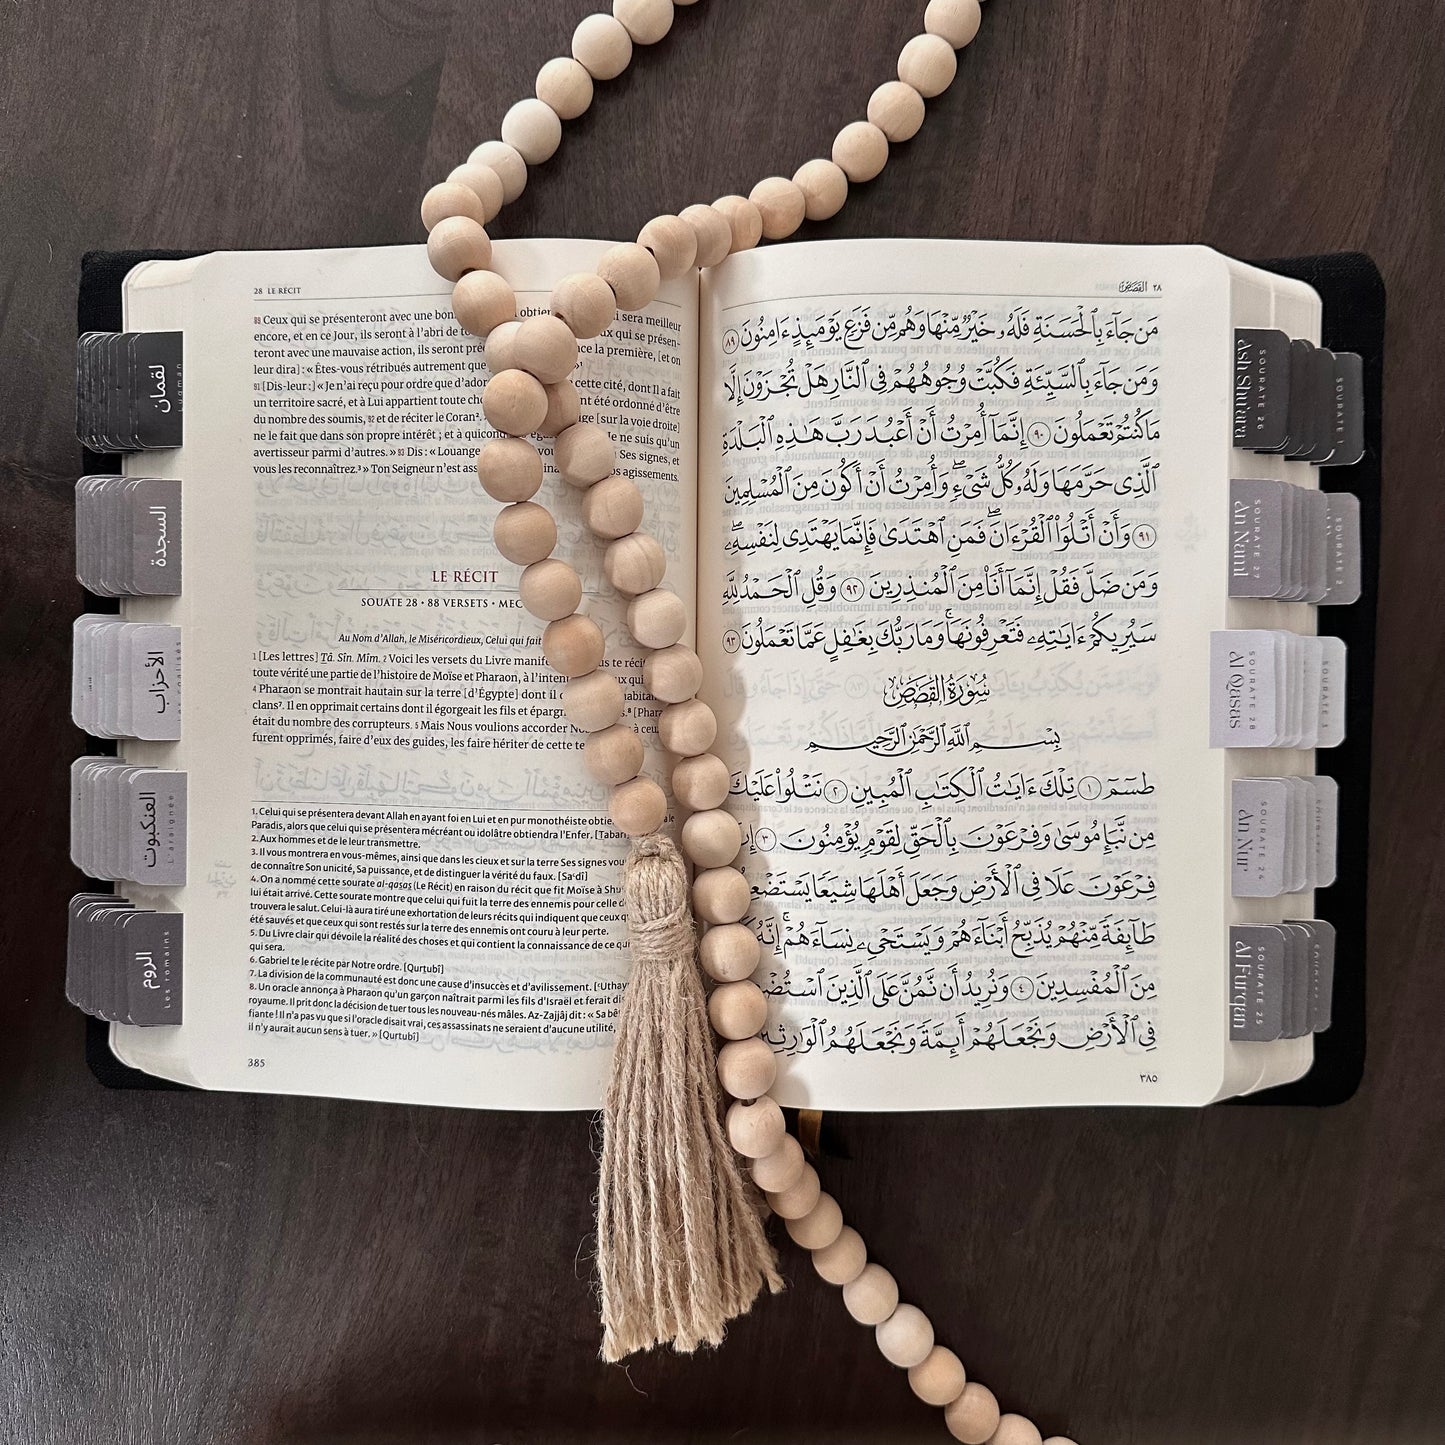 28 LE RÉCIT
89 Ceux qui se présenteront avec une sera meilleur
encore, et en ce Jour, ils seront à l'abri de qui se présen-
teront avec une mauvaise action, ils seront la première, [et on
leur dira] : « Êtes-vous rétribués autrement que
91 [Dis-leur :] « Je n'ai reçu pour ordre que cette cité, dont Il a fait
un territoire sacré, et à Lui appartient toute été ordonné d'être
du nombre des soumis, 92 et de réciter le Coran². [sur la voie droite]
ne le fait que dans son propre intérêt ; et à ne suis qu'un
avertisseur parmi d'autres. » 93 Dis : « Louange Ses signes, et
vous les reconnaîtrez.³ » Ton Seigneur n'est agissements.
LE RÉCIT
SOUATE 28 • 88 VERSETS •
Au Nom d'Allah, le Miséricordieux, Celui qui fait
1 [Les lettres] Tâ. Sîn. Mîm. 2 Voici les versets du Livre
toute vérité une partie de l'histoire de Moïse et Pharaon, à qui
4 Pharaon se montrait hautain sur la terre [d'Égypte] dont il
clans⁷. Il en opprimait certains dont il égorgeait les fils et
était du nombre des corrupteurs. 5 Mais Nous voulions accorder à ceux
furent opprimés, faire d'eux des guides, les faire hériter de cette
1. Celui qui se présentera devant Allah en ayant foi en Lui et en pur monothéiste le
Paradis, alors que celui qui se présentera mécréant ou idolâtre obtiendra l'Enfer.
2. Aux hommes et de le leur transmettre.
3. Il vous montrera en vous-mêmes, ainsi que dans les cieux et sur la terre Ses signes
de connaître Son unicité, Sa puissance, et de distinguer la vérité du faux. [Sa'dî]
4. On a nommé cette sourate al-qasas (Le Récit) en raison du récit que fit Moïse à
lui était arrivé. Cette sourate montre que celui qui fuit la terre des ennemis pour celle
trouvera le salut. Celui-là aura tiré une exhortation de leurs récits qui indiquent que ceux
été sauvés et que ceux qui sont restés sur la terre des ennemis ont couru à leur perte.
5. Du Livre clair qui dévoile la réalité des choses et qui contient la connaissance de ce
qui sera.
6. Gabriel te le récite par Notre ordre. [Qurtubî]
7. La division de la communauté est donc une cause d'insuccès et d'avilissement.
8. Un oracle annonça à Pharaon qu'un garçon naîtrait parmi les fils d'Israël et ferait
royaume. Il prit donc la décision de tuer tous les nouveau-nés mâles. Az-Zajjâj dit : «
fiante ! Il n'a pas vu que si l'oracle disait vrai, ces assassinats ne seraient d'aucune utilité,
il n'y aurait aucun sens à tuer. » [Qurtubî]
385
٢٨ القصص
مَن جَآءَ بِٱلْحَسَنَةِ فَلَهُۥ خَيْرٌ مِّنْهَا وَهُم مِّن فَزَعٍ يَوْمَئِذٍ ءَامِنُونَ ٨٩
وَمَن جَآءَ بِٱلسَّيِّئَةِ فَكُبَّتْ وُجُوهُهُمْ فِى ٱلنَّارِ هَلْ تُجْزَوْنَ إِلَّا
مَا كُنتُمْ تَعْمَلُونَ ٩٠ إِنَّمَآ أُمِرْتُ أَنْ أَعْبُدَ رَبَّ هَـٰذِهِ ٱلْبَلْدَةِ
ٱلَّذِى حَرَّمَهَا وَلَهُۥ كُلُّ شَىْءٍ ۖ وَأُمِرْتُ أَنْ أَكُونَ مِنَ ٱلْمُسْلِمِينَ
٩١ وَأَنْ أَتْلُوَا۟ ٱلْقُرْءَانَ ۖ فَمَنِ ٱهْتَدَىٰ فَإِنَّمَا يَهْتَدِى لِنَفْسِهِۦ ۖ
وَمَن ضَلَّ فَقُلْ إِنَّمَآ أَنَا۠ مِنَ ٱلْمُنذِرِينَ ٩٢ وَقُلِ ٱلْحَمْدُ لِلَّهِ
سَيُرِيكُمْ ءَايَـٰتِهِۦ فَتَعْرِفُونَهَا ۚ وَمَا رَبُّكَ بِغَـٰفِلٍ عَمَّا تَعْمَلُونَ ٩٣
سُورَةُ القَصَصِ
بِسْمِ ٱللَّهِ ٱلرَّحْمَـٰنِ ٱلرَّحِيمِ
طسٓمٓ ١ تِلْكَ ءَايَـٰتُ ٱلْكِتَـٰبِ ٱلْمُبِينِ ٢ نَتْلُوا۟ عَلَيْكَ
مِن نَّبَإِ مُوسَىٰ وَفِرْعَوْنَ بِٱلْحَقِّ لِقَوْمٍ يُؤْمِنُونَ ٣
فِرْعَوْنَ عَلَا فِى ٱلْأَرْضِ وَجَعَلَ أَهْلَهَا شِيَعًا
طَآئِفَةً مِّنْهُمْ يُذَبِّحُ أَبْنَآءَهُمْ وَيَسْتَحْىِۦ نِسَآءَهُمْ ۚ إِنَّهُۥ
مِنَ ٱلْمُفْسِدِينَ ٤ وَنُرِيدُ أَن نَّمُنَّ عَلَى ٱلَّذِينَ
فِى ٱلْأَرْضِ وَنَجْعَلَهُمْ أَئِمَّةً وَنَجْعَلَهُمُ
٣٨٥
لقمان
Luqman
السجدة
الأحزاب
العنكبوت
L'araignée
الروم
Les romains
SOURATE 26
Ash Shuara
SOURATE 1
SOURATE 27
An Naml
SOURATE 2
SOURATE 28
Al Qasas
SOURATE 3
SOURATE 24
An Nur
SOURATE 25
Al Furqan